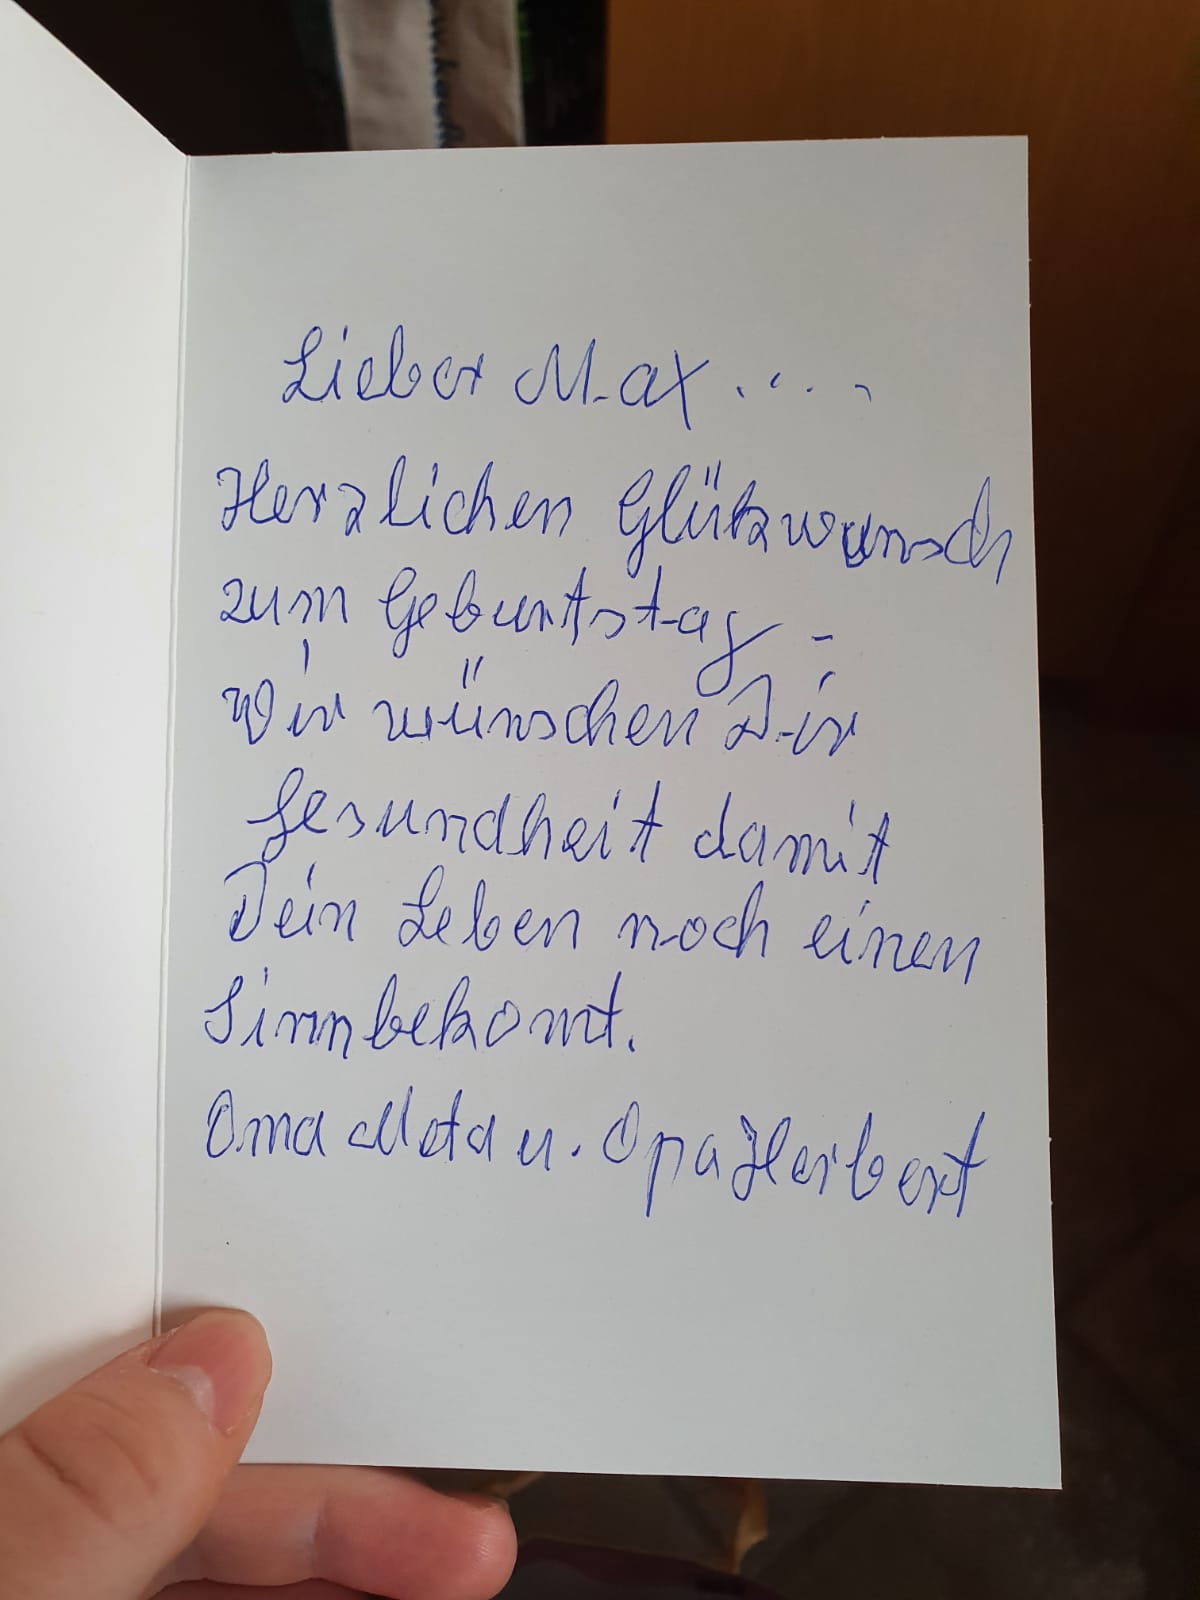 Lieber Max....
Herzlichen Glükwunsch
zum Geburtstag -
Wir wünschen Dir
Gesundheit damit
Dein Leben noch einen
Sinnbekomt.
Oma Meta u. Opa Heribert